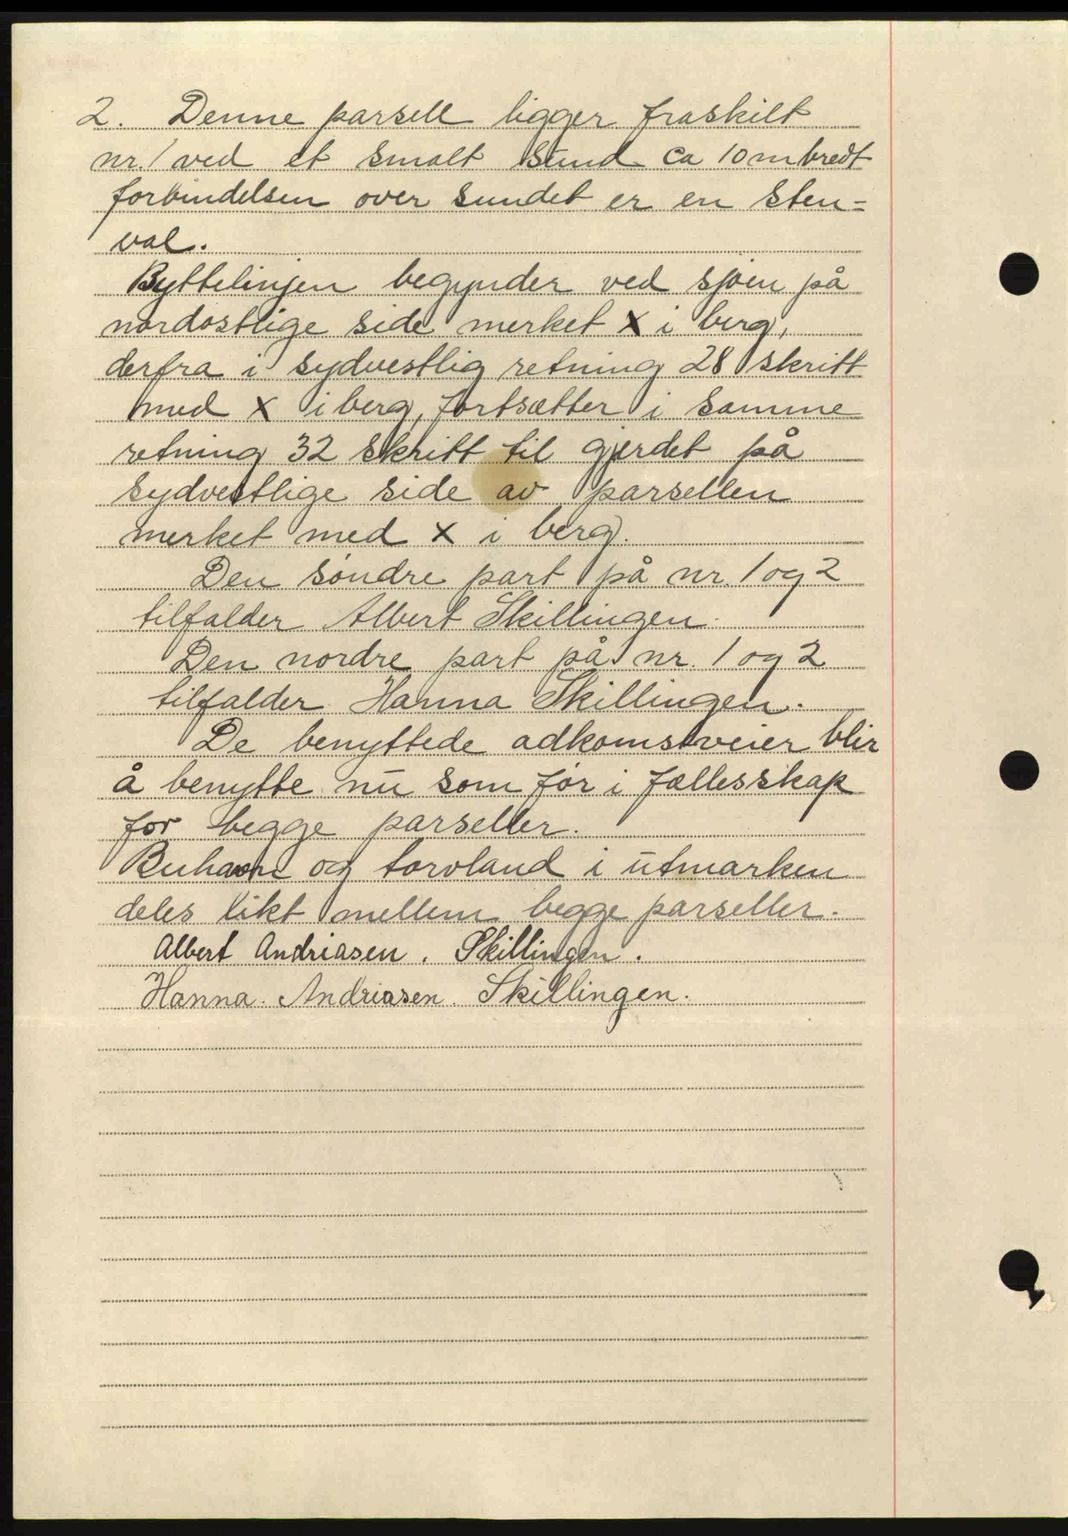 2. Denne parsell ligger fraskilt
nr. 1 ved et smalt sund ca 10 m bredt
forbindelsen over sundet er en sten-
val.
Byttelinjen begynder ved sjøen på
nordøstlige side merket X i berg,
derfra i sydvestlig retning 28 skritt
med X i berg, fortsætter i samme
retning 32 skritt til gjerdet på
sydvestlige side av parsellen
merket med X i berg.
Den søndre part på nr. 1 og 2
tilfalder Albert Skillingen.
Den nordre part på nr. 1 og 2
tilfalder Hanna Skillingen.
De benyttede adkomstveier blir
å benytte nu som før i fællesskap
for begge parseller.
og torvland i utmarken
deles likt mellem begge parseller.
Albert Andriasen. Skillingen.
Hanna. Andriasen. Skillingen.